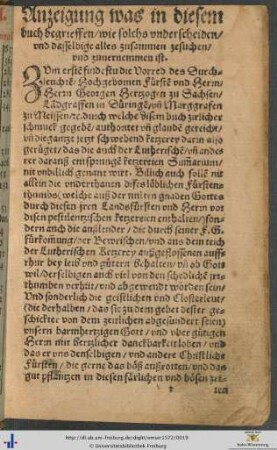 Anzeigung was in diesem
buch begrieffen / wie solchs vnderscheiden /
vnd dasselbige alles zusammen zesuchen /
vnd zuuernemmen ist.
ZVm erstē findestu die Vorred des Durch-
leuchtē Hochgebornen Fürstē vnd Herrn /
Herrn Georgen Hertzogen zu Sachsen /
Landgraffen in Düringē / vñ Marggrafen
zu Meissen / ꝛc. durch welche disem buch zirlicher
schmuck gegebē / authoritet vñ glaubē gereicht /
vñ die gantze jetzt schwebend ketzerey darin also
gerüget / das die auch der Lutherischē / vñ andes
rer daranß entsprungē ketzereien Summarum /
nit vnbillich genant wirt. Billich auch sollē nit
allein die vnderthanen disses löblichen Fürsten-
thumbs / welche auß der milten gnaden Gottes
durch disen jren Landsfürsten vnd Herrn vor
disen pestilentzischen ketzereien enthalten / son-
dern auch die außlender / die durch seiner F. G.
fürkomung / oder Beweischen / vnd aus dem teich
der Lutherischen Ketzerey außgestossenen auff-
rhur bey leib vnd gütern Behalten / vñ ob Gott
wil / derselbigen auch viel von den schedlichē jrr-
thumben verhüt / vnd abgewendt worden sein /
Vnd sonderlich die geistlichen vnd Closterleut /
(die derhalben / das sie zu dem gebet dester ge-
schickter von dem zeitlichen abgesündert seien)
vnsern barmhertzigen Gott / vnd vber gütigen
Herrn mit hertzlicher danckbarkeit loben / vnd
das er vns denselbigen / vnd andere Christliche
Fürsten / die gerne das böß außrotten / vnd das
gut pflantzen in diesen färlichen vnd bösen zei-
ten
http://dl.ub.uni-freiburg.de/diglit/emser1572/0019
© Universitätsbibliothek Freiburg
Baden-Württemberg